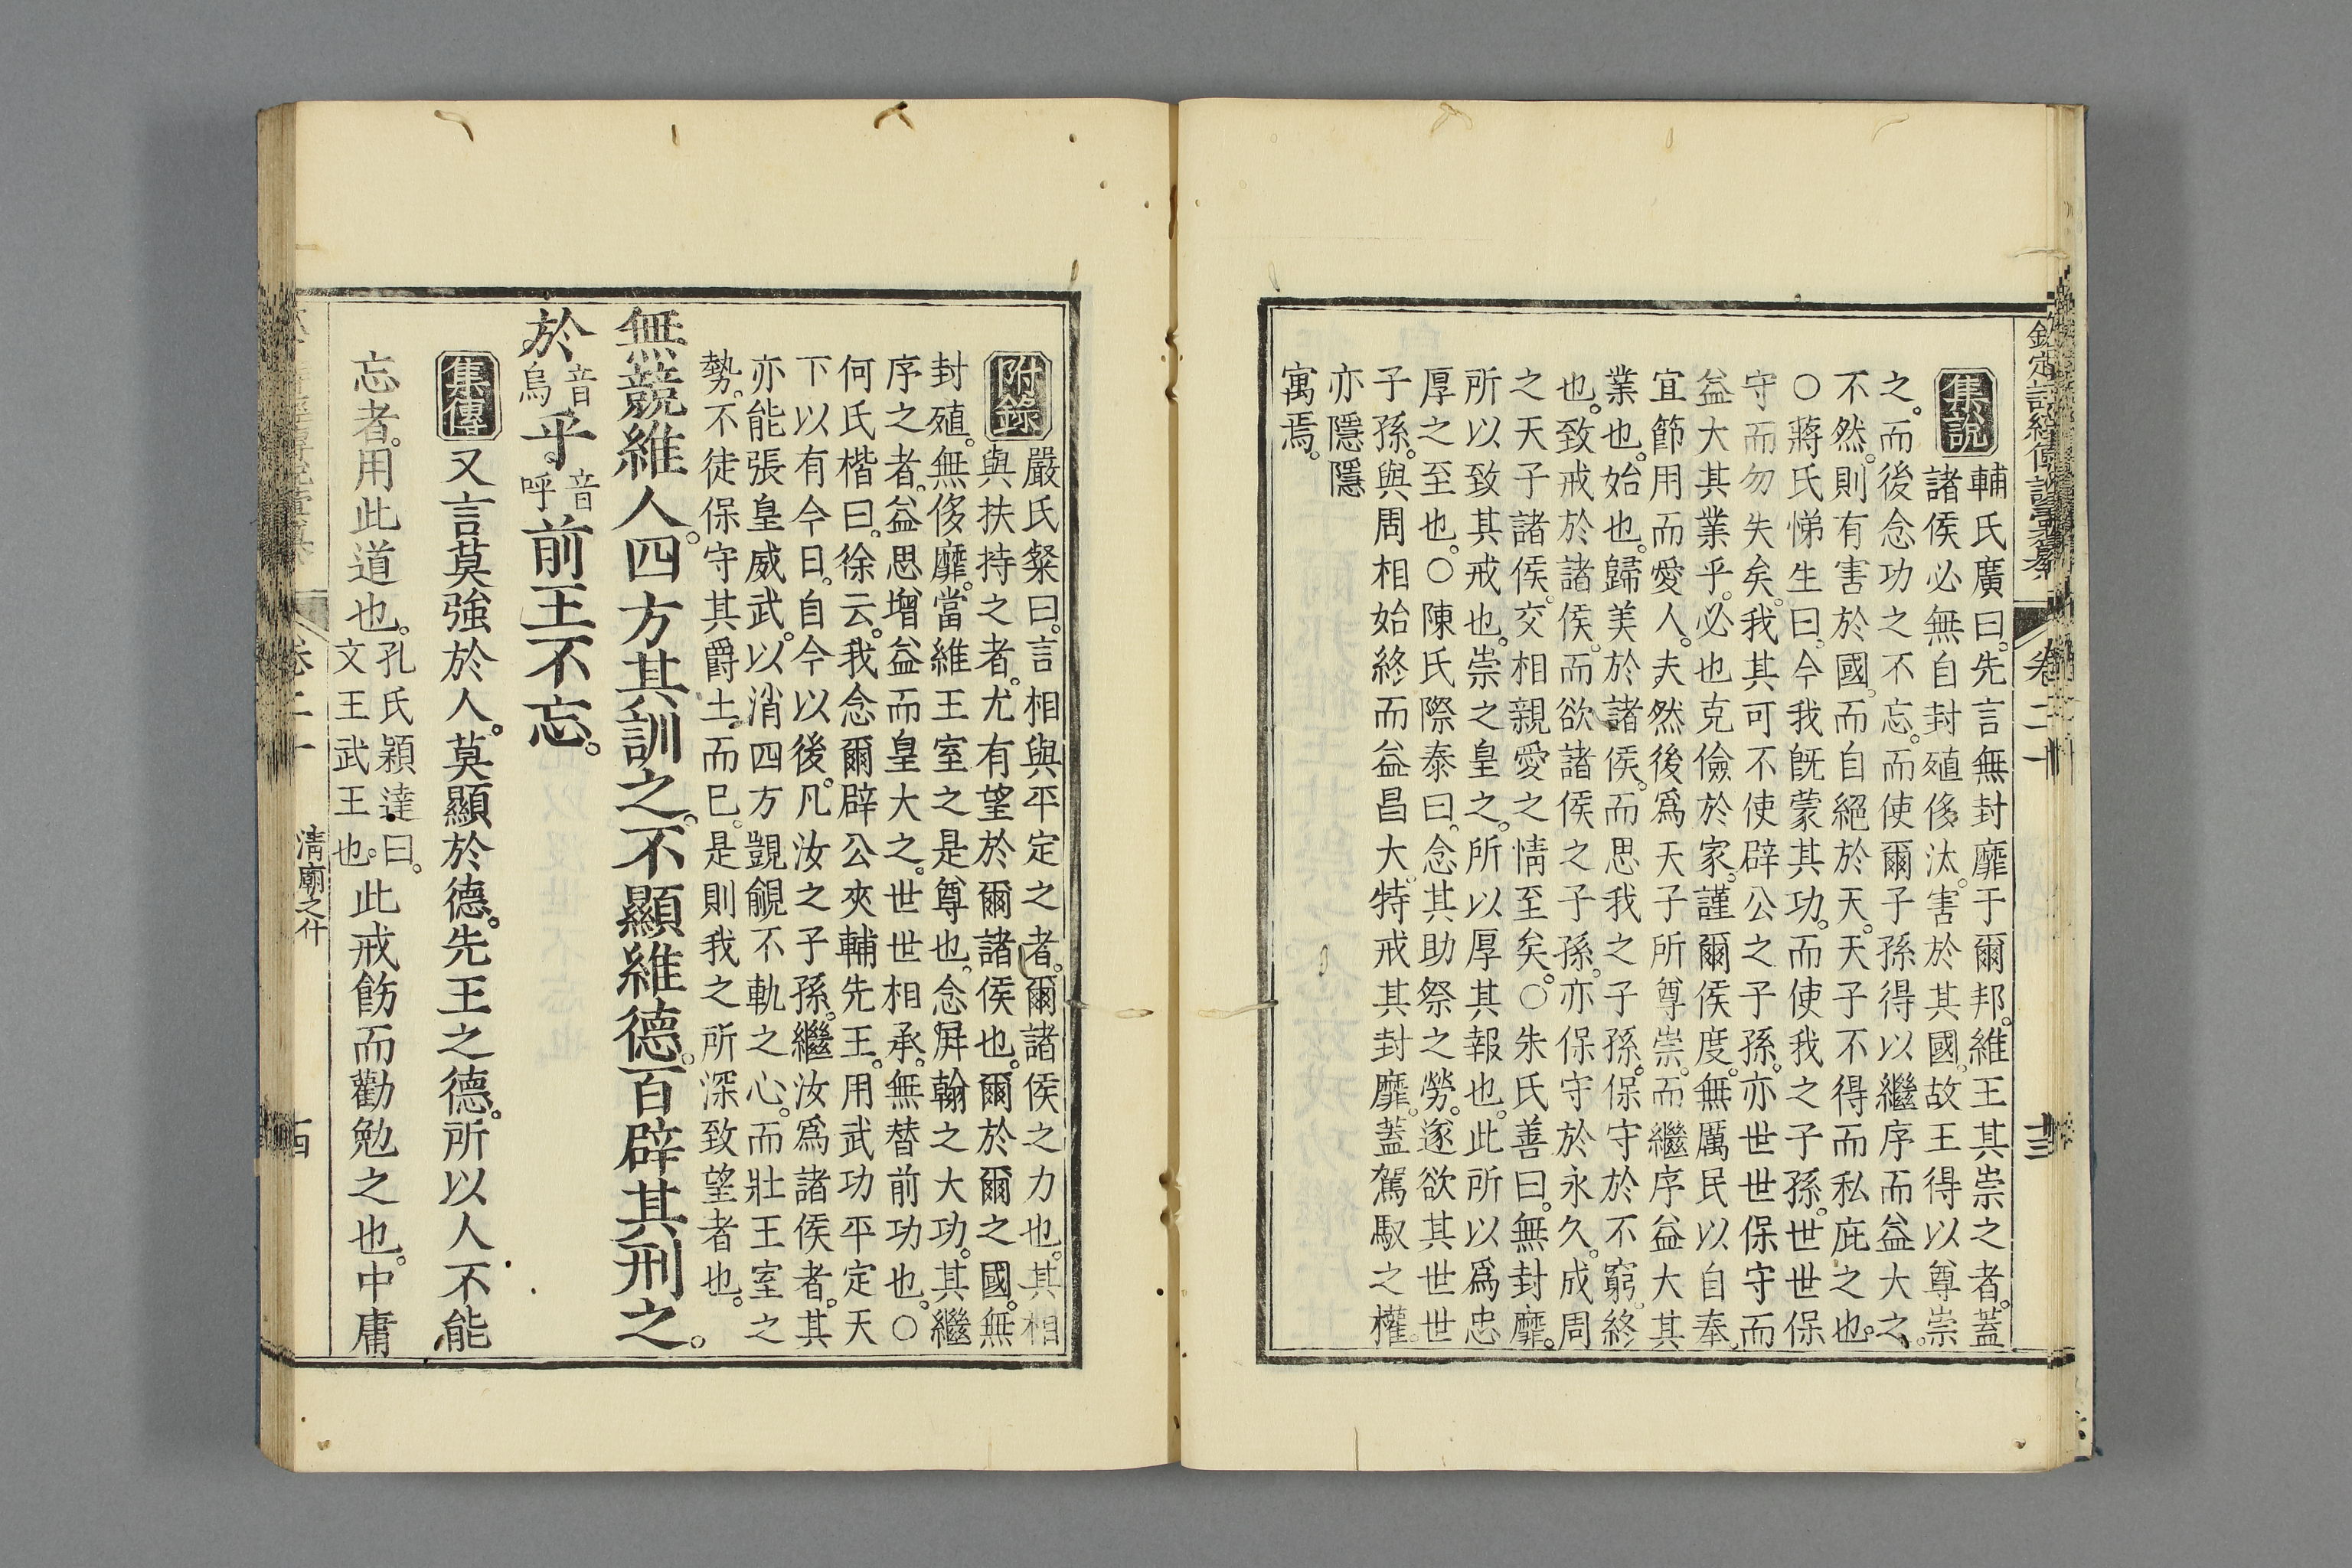 欽定詩經傳說彙纂 卷二十一 三
集說
輔氏廣曰。先言無封靡于爾邦。維王其崇之者。蓋
諸侯必無自封殖侈汰。害於其國。故王得以尊崇。
之。而後念功之不忘。而使爾子孫得以繼序而益大之。
不然。則有害於國。而自絕於天。天子不得而私庇之也。
○蔣氏悌生曰。今我旣蒙其功。而使我之子孫。世世保
守而勿失矣。我其可不使辟公之子孫。亦世世保守而
益大其業乎。必也克儉於家。謹爾侯度。無厲民以自奉。
宜節用而愛人。夫然後爲天子所尊崇。而繼序益大其
業也。始也。歸美於諸侯。而思我之子孫。保守於不窮。終
也。致戒於諸侯。而欲諸侯之子孫。亦保守於永久。成周
之天子諸侯。交相親愛之情至矣。○朱氏善曰。無封靡。
所以致其戒也。崇之皇之。所以厚其報也。此所以爲忠
厚之至也。○陳氏際泰曰。念其助祭之勞。遂欲其世世
子孫。與周相始終而益昌大。特戒其封靡。蓋駕馭之權。
亦隱隱
寓焉。
附錄
嚴氏粲曰。言相與平定之者。爾諸侯之力也。其相
與扶持之者。尤有望於爾諸侯也。爾於爾之國。無
封殖。無侈靡。當維王室之是尊也。念屛翰之大功。其繼
序之者。益思增益而皇大之。世世相承。無替前功也。○
何氏楷曰。徐云。我念爾辟公夾輔先王。用武功平定天
下以有今日。自今以後。凡汝之子孫。繼汝爲諸侯者。其
亦能張皇威武。以消四方覬覦不軌之心。而壯王室之
勢。不徒保守其爵土。而已。是則我之所深致望者也。
無競維人。四方其訓之。不顯維德。百辟其刑之。
於音烏乎音呼前王不忘。
集傳
又言莫強於人。莫顯於德。先王之德。所以人不能
忘者。用此道也。孔氏穎達曰。文王武王也。此戒飭而勸勉之也。中庸
卷二十一 清廟之什